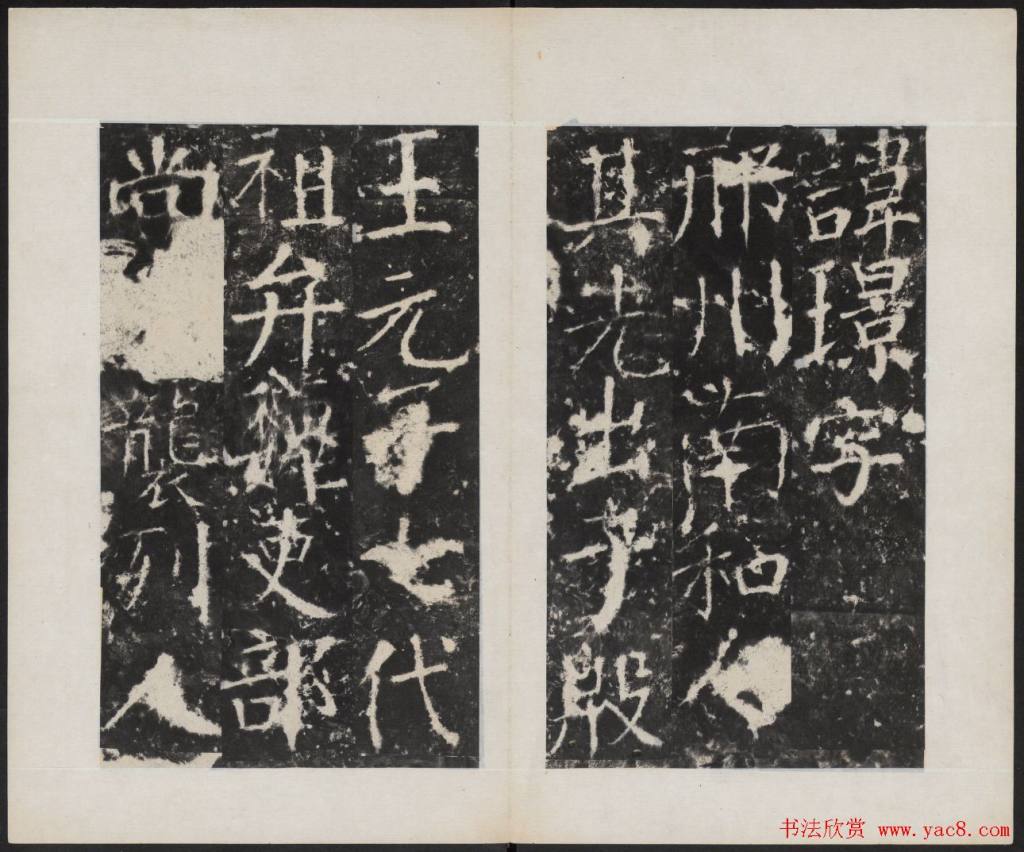 諱璟字
邢州南和人
其先出于殷
王元子七代
祖弁魏吏部
尚
襲列人
书法欣赏 www.yac8.com